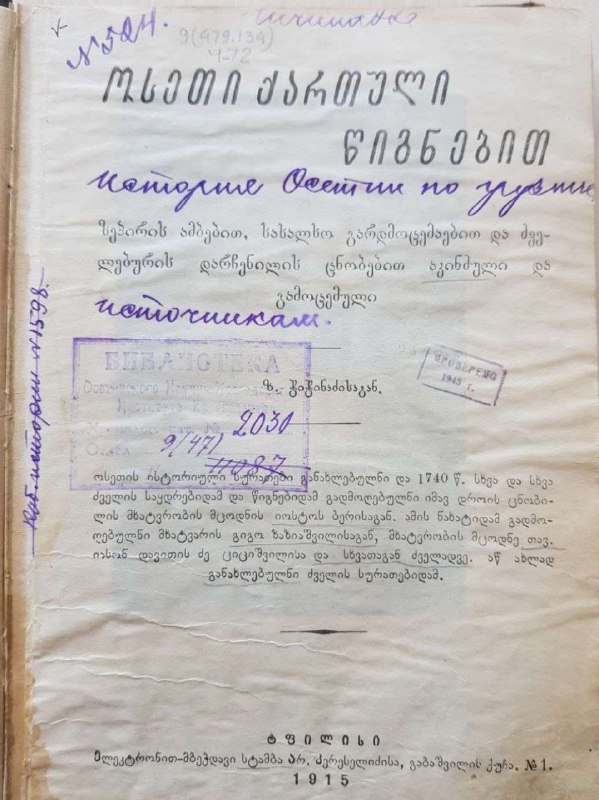 Чичинадзе
№ 524.
9(479.134)
Ч-72
ოსეთი ქართული
წიგნებით
История Осетии по грузин
ზეპირის ამბებით, სახალხო გარდმოცემაებით და ძვე-
ლებურის დარჩენილის ცნობებით აკინძული და
გამოცემული
источникам.
Каб. истории №1598.
БИБЛИОТЕКА
ПРОВЕРЕНО
1943 г.
ზ. ჭიჭინაძისაგან.
2030
9(47)
11087
ოსეთის ისტორიული სურათები განახლებულნი და 1740 წ. სხვა და სხვა
ძველის საყდრებიდამ და წიგნებიდამ გადმოღებულნი იმავ დროის ცნობი-
ლის მხატვრობის მცოდნის იოსტოს ბერისაგან. ამის ნახატიდამ გადმო-
ღებულნი მხატვარის გიგო ზაზიაშვილისაგან, მხატვრობის მცოდნე თავ.
იასონ დავითის ძე ციციშვილისა და სხვათაგან ძველადვე. აწ ახლად
განახლებულნი ძველის სურათებიდამ.
ტფილისი
ელექტრონით-მბეჭდავი სტამბა არ. კერესელიძისა, გაბაშვილის ქუჩა. № 1.
1915